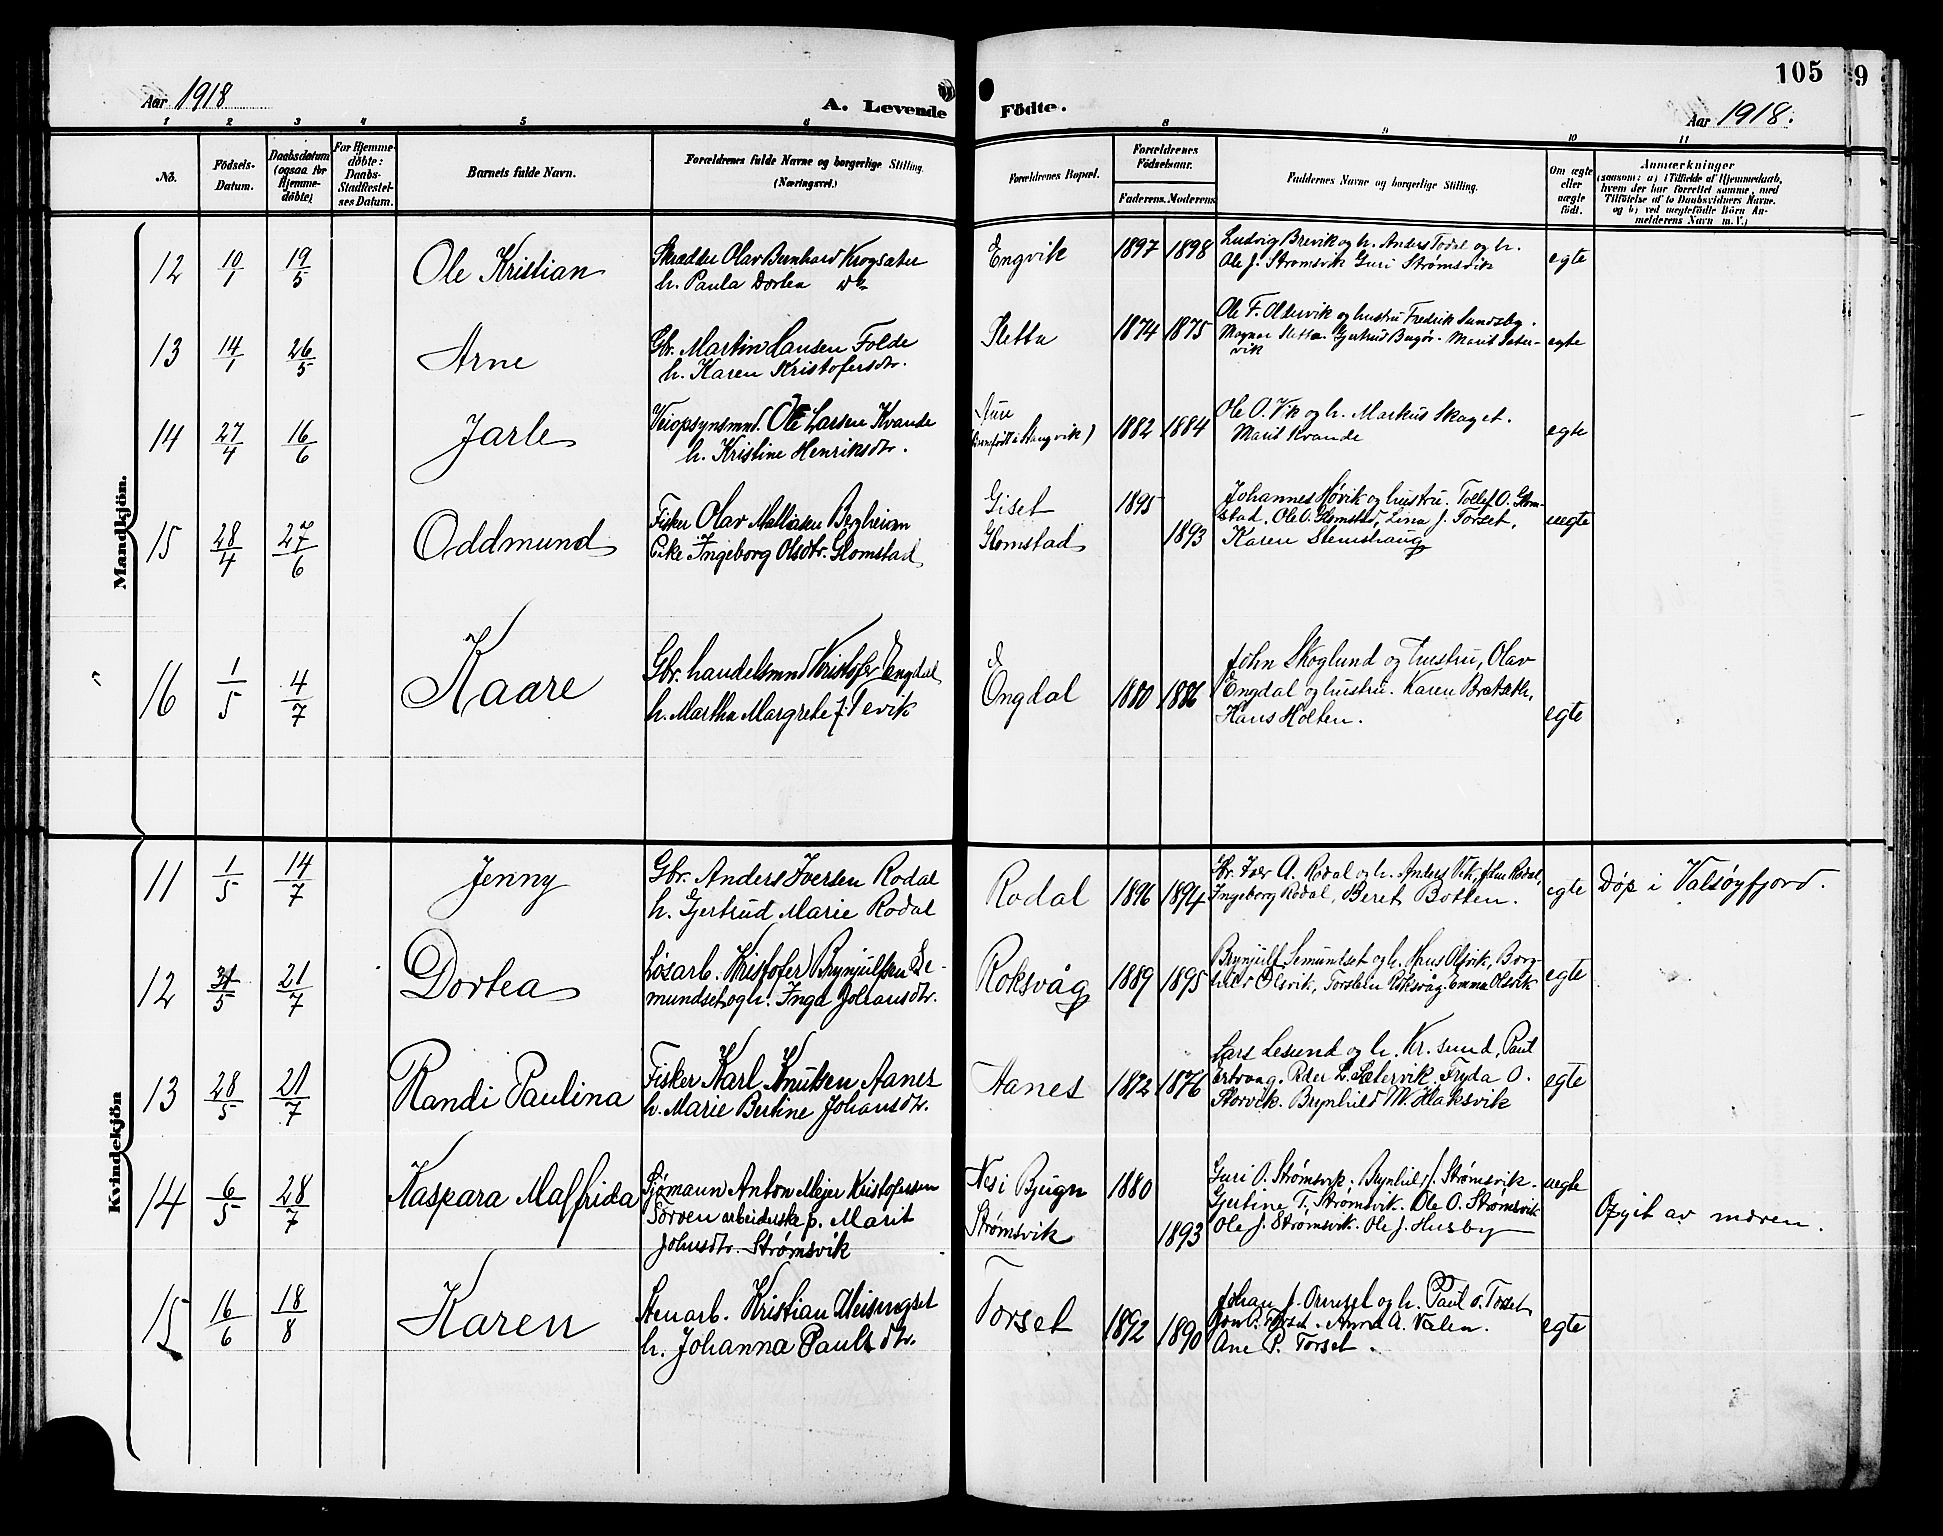 Aar 1918
A. Levende
Födte.
105
9
Aar 1918.
1 2 3 4 5 6 8 9 10 11
No.
Födsels-
Datum.
Daabsdatum
(ogsaa for
Hjemme-
døbte)
For Hjemme-
døbte:
Daabs-
Stadfæstel-
ses Datum.
Barnets fulde Navn.
Forældrenes fulde Navne og borgerlige Stilling.
(Næringsvei.)
Forældrenes Bopæl.
Forældrenes
Födselsaar.
Faderens. Moderens
Faddernes Navne og borgerlige Stilling.
Om ægte
eller
uægte
født.
Anmærkninger
(saasom: a) i Tilfælde af Hjemmedaab,
hvem der har forrettet samme, med
Tilföielse af to Daabsvidners Navne.
og b) ved uægtefödte Börn An-
melderens Navn m. V.)
Mandkjön.
12 10/1 19/5 Ole Kristian
Skrædder Olav Bernhard Krogsæter
h. Paula Dortea
Engvik 1897 1898
Ludvig Brevik og h. Anders Todal og h.
Ole J. Strømsvik Guri Strømsvik
egte
13 14/1 26/5 Arne
Gbr. Martin Lausen Folde
h. Karen Kristofersdtr.
Sletta 1874 1875
Ole F. Oldervik og hustru Fredrik Sundsby.
Magnar Sletta. Gjertrud Bugør. Marit Sæter-
vik
egte
14 27/4 16/6 Jarle
Veiopsynsmd. Ole Larsen Kvande
h. Kristine Henriksdtr.
Aure
Stangvik) 1882 1884
Ole O. Vik og h. Markus Skaget.
Marit Kvande
egte
15 28/4 27/6 Oddmund
Fisker Olav Mathiasen Bergheim
Pike Ingeborg Olsdtr. Glomstad
Giset 1895
Glomstad 1893
Johannes Høvik og hustru. Tollef O. Glom-
stad. Ole O. Glomstad, Lina J. Torset,
Karen Stenshaug
uegte
16 1/5 4/7 Kaare
Gbr. handelsmnd Kristofer Engdal
h. Martha Margrete J. Tevik
Engdal 1880 1886
John Skoglund og hustru, Olav
Engdal og hustru. Karen Bratseth,
Hans Holten.
egte
Kvindekjön
11 1/5 14/7 Jenny
Gbr. Anders Iversen Rodal
h. Gjertrud Marie Rodal
Rodal 1896 1894
Gbr. Iver A. Rodal og h. Anders Vik, John Rodal,
Ingeborg Rodal, Beret Botten.
egte Døp i Valsøyfjord.
12 31/5 21/7 Dortea
Løsarb. Kristofer Brynjulfsen Se-
mundset og h. Inga Johansdtr.
Roksvåg 1889 1895
Brynjulf Semundset og h. Olsvik, Borg-
hild Olsvik, Torstein Roksvåg. Emma Olsvik
egte
13 28/5 21/7 Randi Paulina
Fisker Karl Knutsen Aanes
h. Marie Bertine Johansdtr.
Aanes 1872 1876
Lars Lesund og h. Kr.sund, Paul
Ertvaag. Peder L. Sætervik. Fryda O.
Storvik. Brynhild M. Haksvik
egte
14 6/5 28/7 Kaspara Malfrida
Sjømann Anton Mejer Kristofersen
Sørven arbeiderske p. Marit
Johnsdtr. Strømsvik
Nes i Bjugn 1880
Strømsvik 1893
Guri O. Strømsvik. Brynhild J. Strømsvik.
Gjertine T. Strømsvik. Ole O. Strømsvik
Ole J. Strømsvik. Ole J. Husby
uegte Opgit av moren.
15 16/6 18/8 Karen
Stenarb. Kristian Meisingset
h. Johanna Paulsdtr.
Torset 1892 1890
Johan J. Ormset og h. Paul O. Torset
Jon P. Torset. Anna A. Valen.
Ane P. Torset.
egte